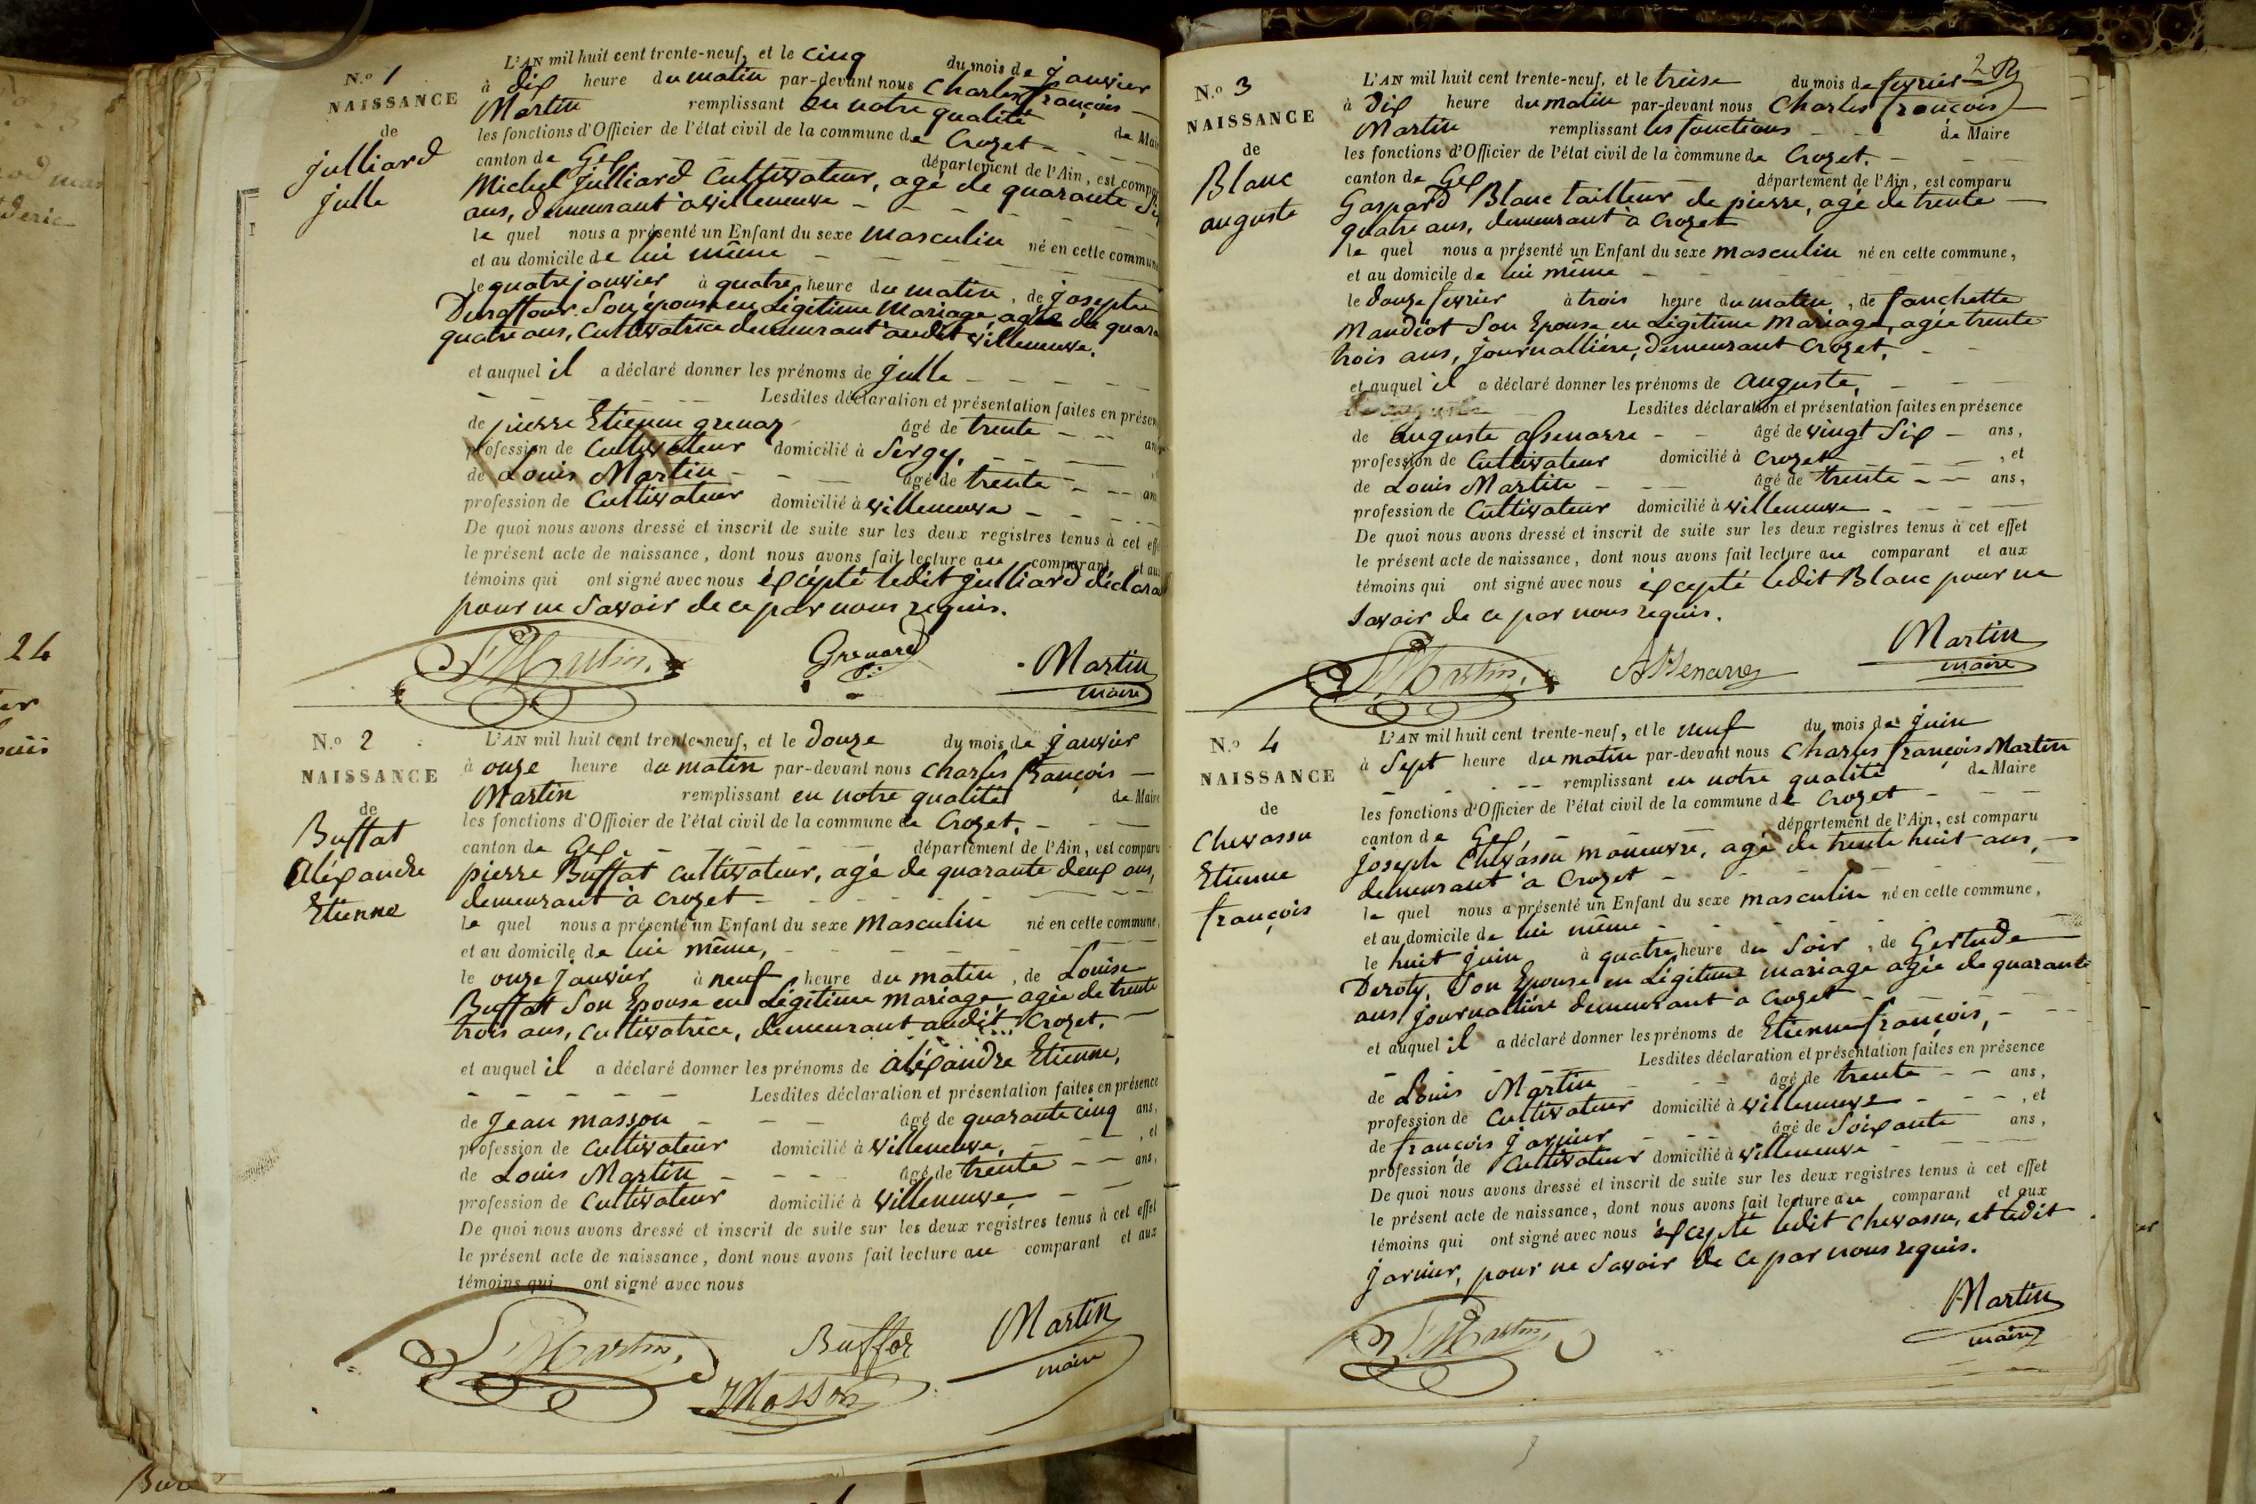 N.o 1
NAISSANCE
de
julliard
julle
L'AN mil huit cent trente-neuf, et le cinq du mois de janvier
à dix heure du matin par-devant nous Charles françois
Martin remplissant en notre qualité de Maire
les fonctions d'Officier de l'état civil de la commune de Crozet
canton de Gex département de l'Ain, est compa
Michel julliard Cultivateur, agé de quarante Six
ans, demeurant à villeneuve
le quel nous a présenté un Enfant du sexe masculin né en cette commune
et au domicile de lui même
le quatre janvier à quatre heure du matin, de josephe
Son épouse en Légitime Mariage, agée de quara
quatre ans, Cultivatrice demeurant audit villeneuve.
et auquel il a déclaré donner les prénoms de julle
Lesdites déclaration et présentation faites en présen
de pierre Etienne grenaz âgé de trente ans
profession de Cultivateur domicilié à Sergy,
de Louis Martin âgé de trente ans
profession de Cultivateur domicilié à villeneuve
De quoi nous avons dressé et inscrit de suite sur les deux registres tenus à cet effe
le présent acte de naissance, dont nous avons fait lecture au comparant et aux
témoins qui ont signé avec nous éxcépté ledit julliard déclara
pour ne Savoir de ce par nous requis.
L. Martin. Grenard Martin
maire
N.o 2
NAISSANCE
de
Buffat
Aléxandre
Etienne
L'AN mil huit cent trente-neuf, et le douze du mois de janvier
à onze heure du matin par-devant nous Charles françois
Martin remplissant en notre qualité de Maire
les fonctions d'Officier de l'état civil de la commune de Crozet.
canton de Gex. département de l'Ain, est comparu
pierre Buffat cultivateur, agé de quarante deux ans,
demeurant à Crozet
le quel nous a présenté un Enfant du sexe Masculin né en cette commune,
et au domicile de lui même,
le onze janvier à neuf heure du matin, de Louise
Buffat Son Epouse en Légitime mariage agée de trente
trois ans, cultivatrice, demeurant audit Crozet.
et auquel il a déclaré donner les prénoms de aléxandre Etienne,
Lesdites déclaration et présentation faites en présence
de Jean masson âgé de quarante cinq ans,
profession de cultivateur domicilié à villeneuve, , et
de Louis Martin âgé de trente ans,
profession de Cultivateur domicilié à villeneuve,
De quoi nous avons dressé et inscrit de suite sur les deux registres tenus à cet effet
le présent acte de naissance, dont nous avons fait lecture au comparant et aux
témoins qui ont signé avec nous
L. Martin. Buffat Martin
JMasson maire
N.o 3
NAISSANCE
de
Blanc
auguste
L'AN mil huit cent trente-neuf, et le treise du mois de fevrier
à dix heure du matin par-devant nous Charles françois
Martin remplissant les fonctions de Maire
les fonctions d'Officier de l'état civil de la commune de Crozet.
canton de Gex département de l'Ain, est comparu
Gaspard Blanc tailleur de pierre, agé de trente
quatre ans, demeurant à Crozet
le quel nous a présenté un Enfant du sexe masculin né en cette commune,
et au domicile de lui même
le douze fevrier à trois heure du matin, de fanchette
Mandiot Son Epouse en Légitime Mariage, agée trente
trois ans, journallière, demeurant Crozet.
et auquel il a déclaré donner les prénoms de auguste,
Lesdites déclaration et présentation faites en présence
de Auguste assenarre âgé de vingt Six ans,
profession de Cultivateur domicilié à Crozet , et
de Louis Martin âgé de trente ans,
profession de Cultivateur domicilié à villeneuve
De quoi nous avons dressé et inscrit de suite sur les deux registres tenus à cet effet
le présent acte de naissance, dont nous avons fait lecture au comparant et aux
témoins qui ont signé avec nous éxcepté ledit Blanc pour ne
Savoir de ce par nous requis.
L. Martin. Martin
maire
N.o 4
NAISSANCE
de
Chevassu
Etienne
françois
L'AN mil huit cent trente-neuf, et le neuf du mois de juin
à Sept heure du matin par-devant nous Charles françois Martin
remplissant en notre qualité de Maire
les fonctions d'Officier de l'état civil de la commune de Crozet
canton de Gex, département de l'Ain, est comparu
joseph Chevassu manœuvre, agé de trente huit ans,
demeurant à Crozet
le quel nous a présenté un Enfant du sexe masculin né en cette commune,
et au domicile de lui même
le huit juin à quatre heure du Soir, de Gertude
Deroty, Son Epouse en Légitime mariage agée de quarante
ans, journallière demeurant à Crozet
et auquel il a déclaré donner les prénoms de Etienne françois,
Lesdites déclaration et présentation faites en présence
de Louis Martin âgé de trente ans,
profession de Cultivateur domicilié à villeneuve , et
de françois jarnier âgé de Soixante ans,
profession de Cultivateur domicilié à villeneuve
De quoi nous avons dressé et inscrit de suite sur les deux registres tenus à cet effet
le présent acte de naissance, dont nous avons fait lecture au comparant et aux
témoins qui ont signé avec nous éxcepté ledit Chevassu, et ledit
jarnier, pour ne Savoir de ce par nous requis.
L. Martin. Martin
maire
24